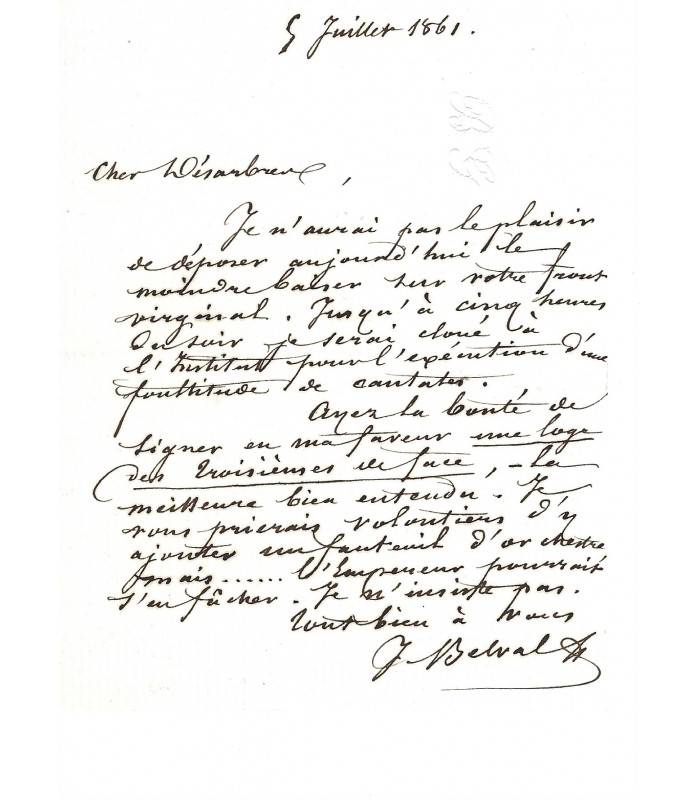 5 Juillet 1861.
Cher Désarbres,
Je n'aurai pas le plaisir
de déposer aujourd'hui le
moindre baiser sur votre front
virginal. Jusqu'à cinq heures
du soir je serai cloué à
l'Institut pour l'exécution d'une
foultitude de cantates.
Ayez la bonté de
signer en ma faveur une loge
des troisièmes de face, - la
meilleure bien entendu. Je
vous prierais volontiers d'y
ajouter un fauteuil d'orchestre
mais...... l'Empereur pourrait
s'en fâcher. Je n'insiste pas.
Tout bien à vous
J Belval